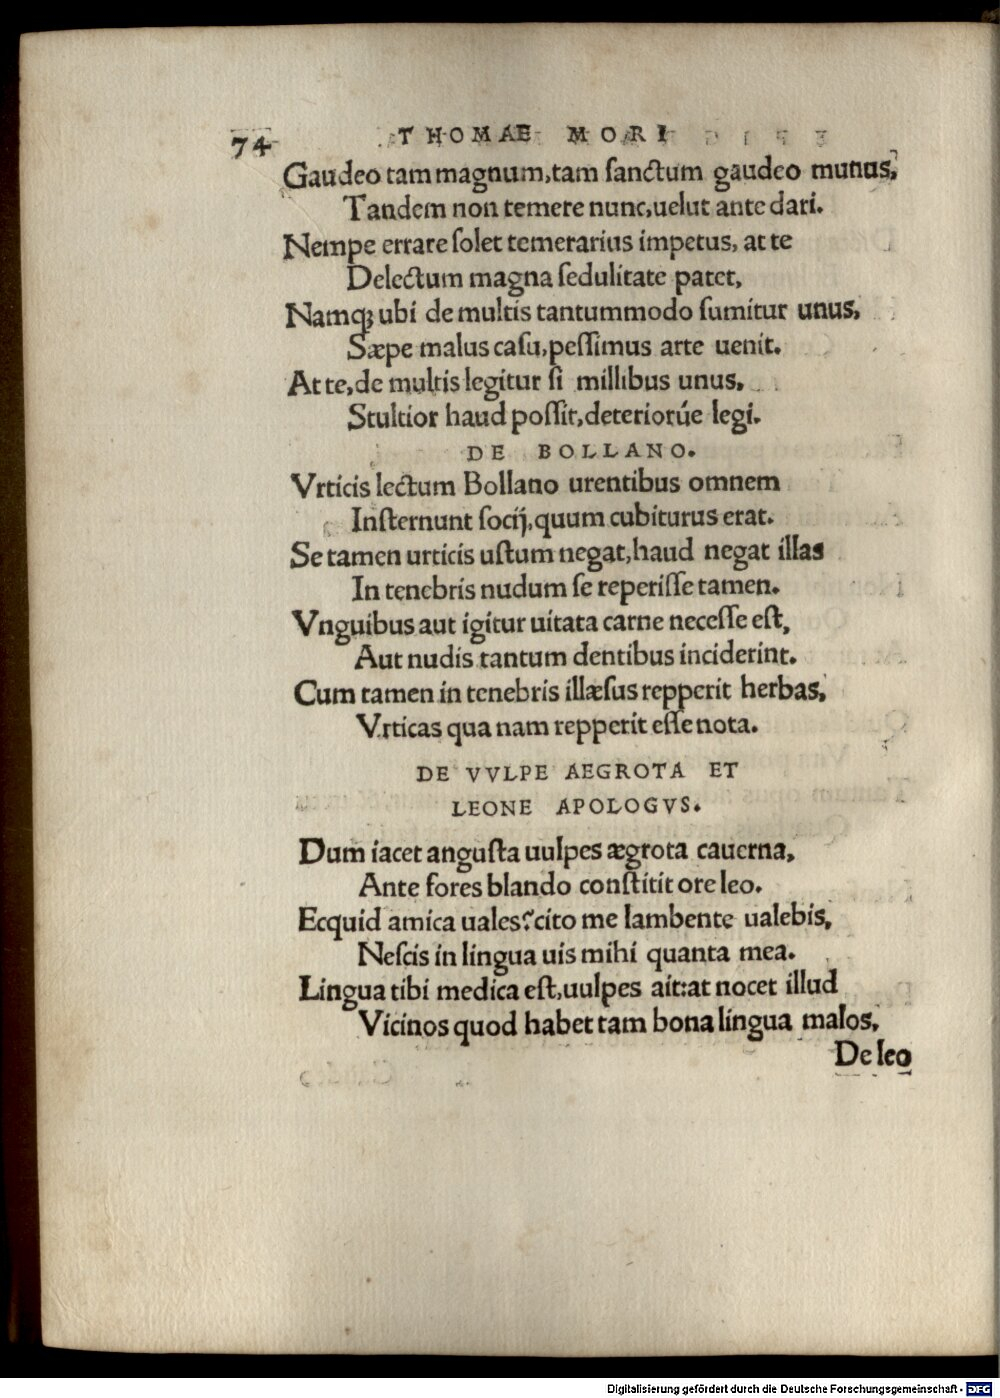 74 THOMAE MORI
Gaudeo tam magnum, tam sanctum gaudeo munus,
Tandem non temere nunc, uelut ante dari.
Nempe errare solet temerarius impetus, at te
Delectum magna sedulitate patet,
Namq; ubi de multis tantummodo sumitur unus,
Sæpe malus casu, pessimus arte uenit.
At te, de multis legitur si millibus unus,
Stultior haud possit, deteriorúe legi.
DE BOLLANO.
Vrticis lectum Bollano urentibus omnem
Insternunt socij, quum cubiturus erat.
Se tamen urticis ustum negat, haud negat illas
In tenebris nudum se reperisse tamen.
Vnguibus aut igitur uitata carne necesse est,
Aut nudis tantum dentibus inciderint.
Cum tamen in tenebris illæsus repperit herbas,
Vrticas qua nam repperit esse nota.
DE VVLPE AEGROTA ET
LEONE APOLOGVS.
Dum iacet angusta uulpes ægrota cauerna,
Ante fores blando constitit ore leo.
Ecquid amica uales? cito me lambente ualebis,
Nescis in lingua uis mihi quanta mea.
Lingua tibi medica est, uulpes ait: at nocet illud
Vicinos quod habet tam bona lingua malos,
De leo
Digitalisierung gefördert durch die Deutsche Forschungsgemeinschaft - DFG